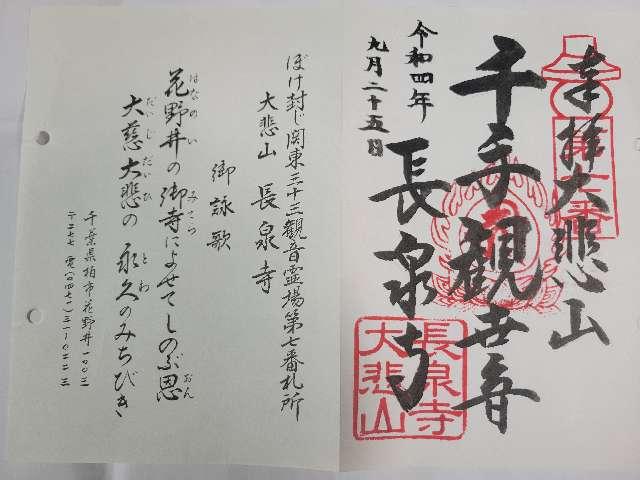 奉拝 大悲山
第七番
千手観世音
長泉寺
令和四年
九月二十五日
長泉寺
大悲山
ぼけ封じ関東三十三観音霊場第七番札所
大悲山 長泉寺
御詠歌
はなのい みてら おん
花野井の御寺によせてしのぶ恩
だいじ だいひ とわ
大慈大悲の 永久のみちびき
千葉県柏市花野井一〇〇三
〒二七七 電(〇四七一)三一-〇二二三